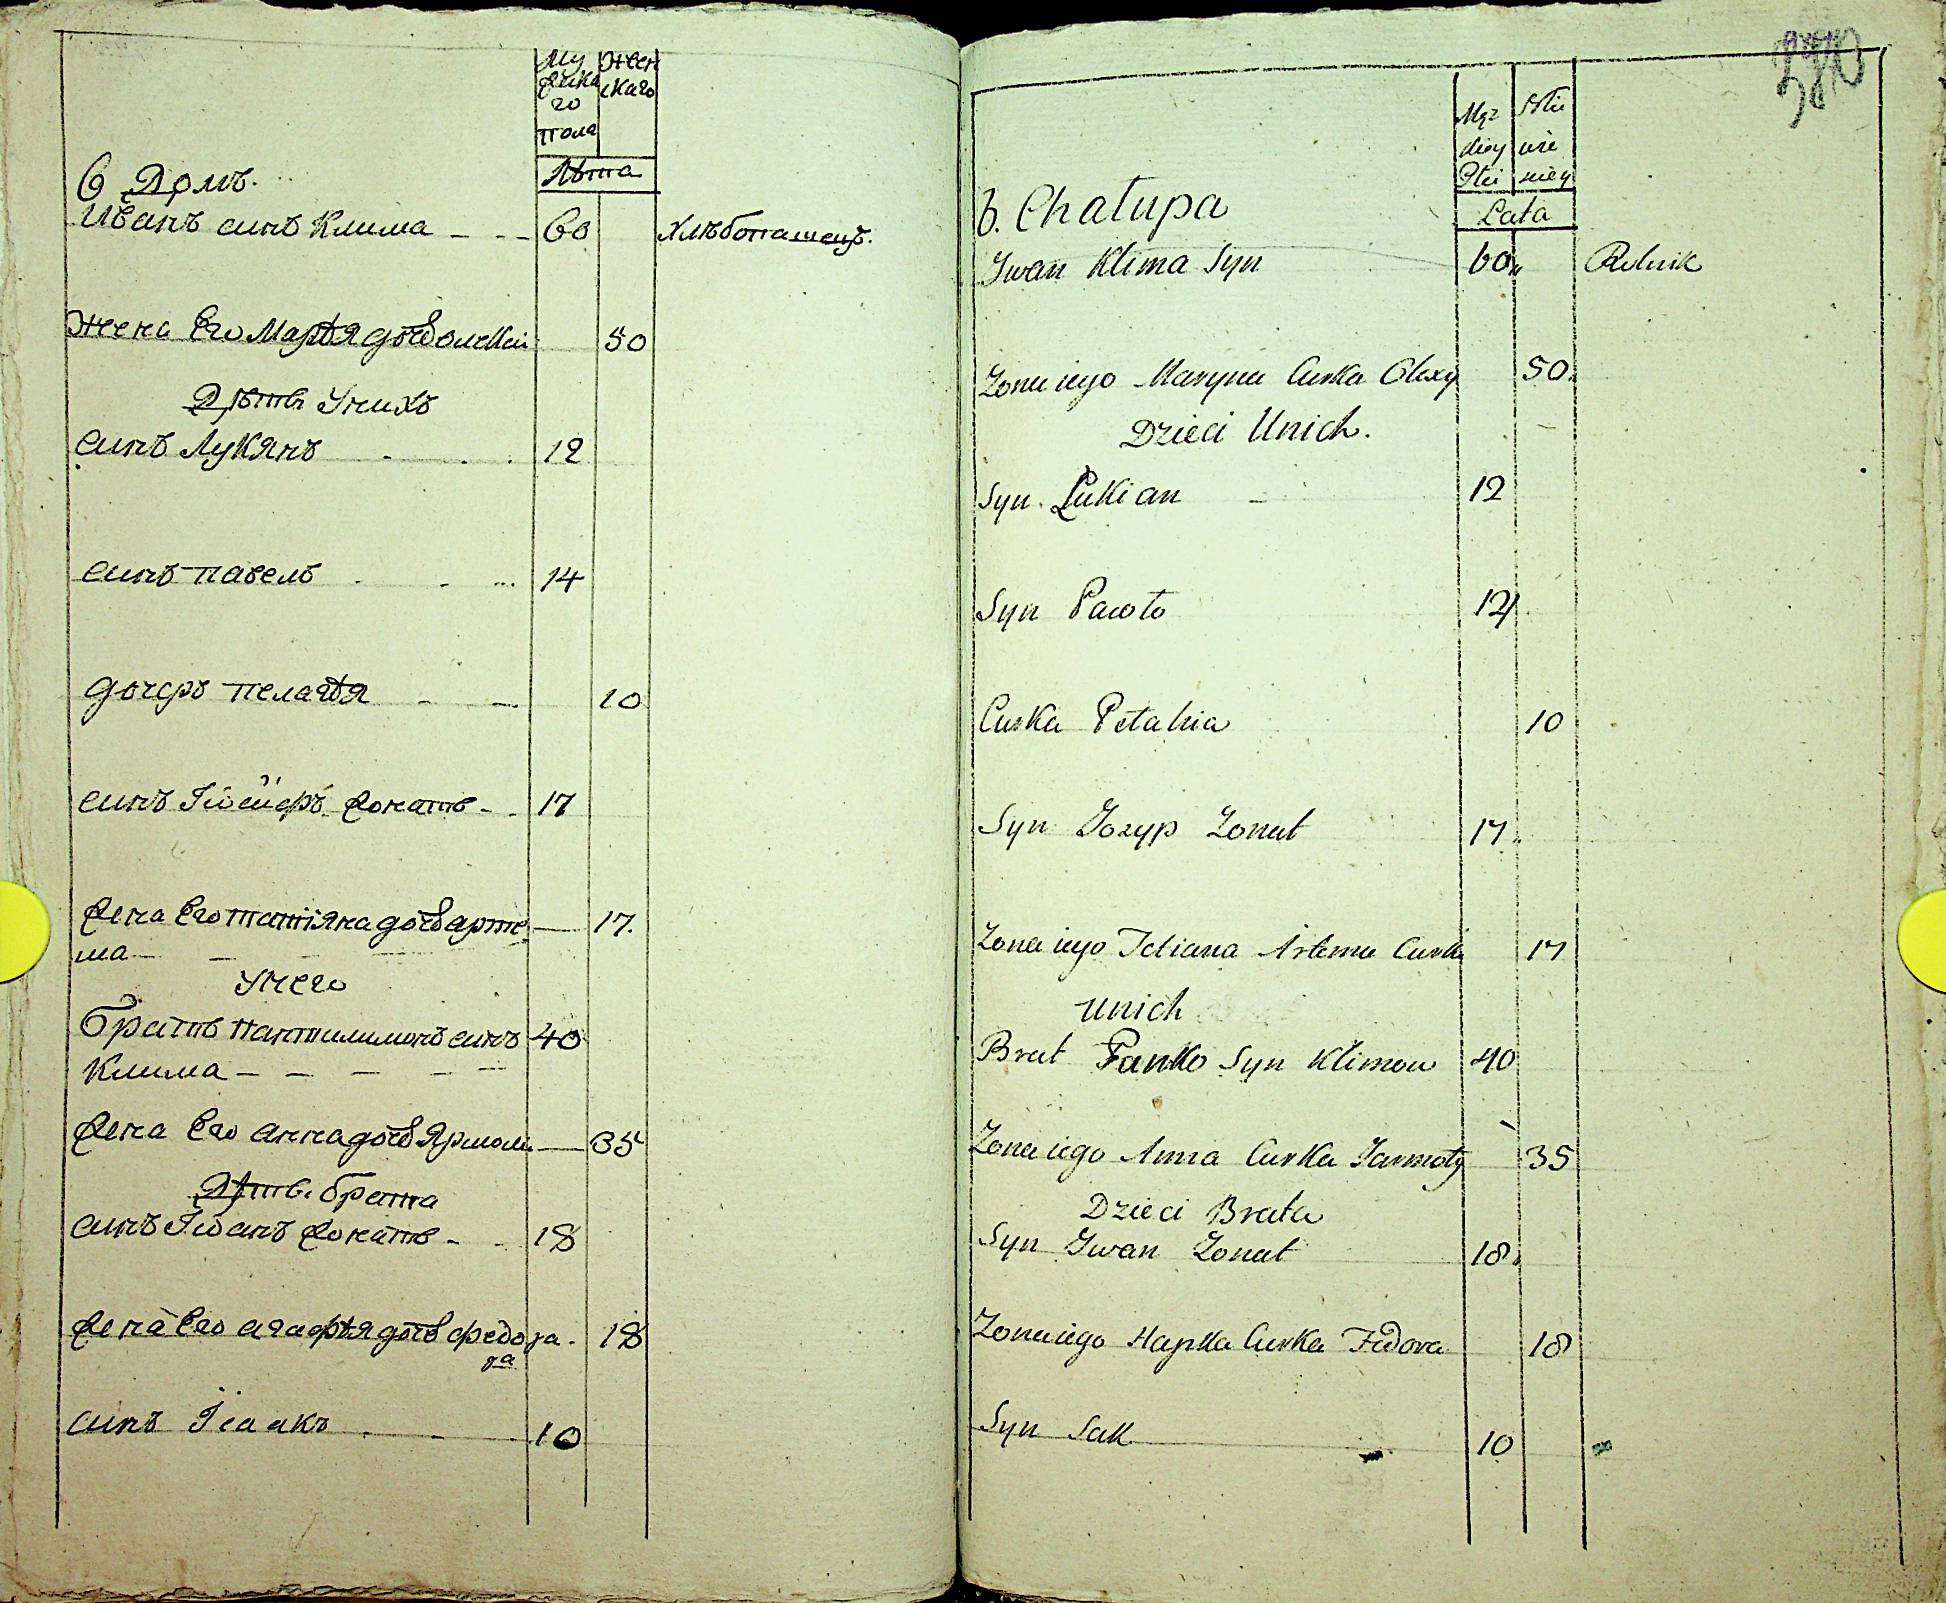 Му
жска
го
пола
Жен
скаго
Лѣта
6 Домъ.
Иванъ синъ Клима 60 Хлѣбопашецъ.
Жена Его Маръя дочь Олекси 50
Дѣти Унихъ
синъ Лукянъ 12
синъ павелъ 14
дочеръ пелагѣя 10
синъ жонатъ 17
жена Его татіяна дочь арте 17.
ма
Унего
братъ пантилимонъ синъ 40
Клима
жена Его анна дочь Ярмоли 35
Дѣти брата
синъ Іванъ жонатъ 18
жена Его агафѣя дочь федора 18
ра
синъ Ісаакъ 10
Męz
kiey
Płci
Lata
6. Chałupa
Jwan Klima Syn 60 Rolnik
Zona iego Maryna Curka Olexy 50
Dzieci Unich.
Syn Łukian 12
Syn Pawło
Curka Pełahia 10
Syn Jozyp Zonat 17
Zona iego Tetiana Artema Curka 17
Unich
Brat Panko Syn Klimow 40
Zona iego Anna Curka Jarmoły 35
Dzieci Brata
Syn Jwan Zonat 18
Zona iego Hapka Curka Fedora 18
Syn Sak 10